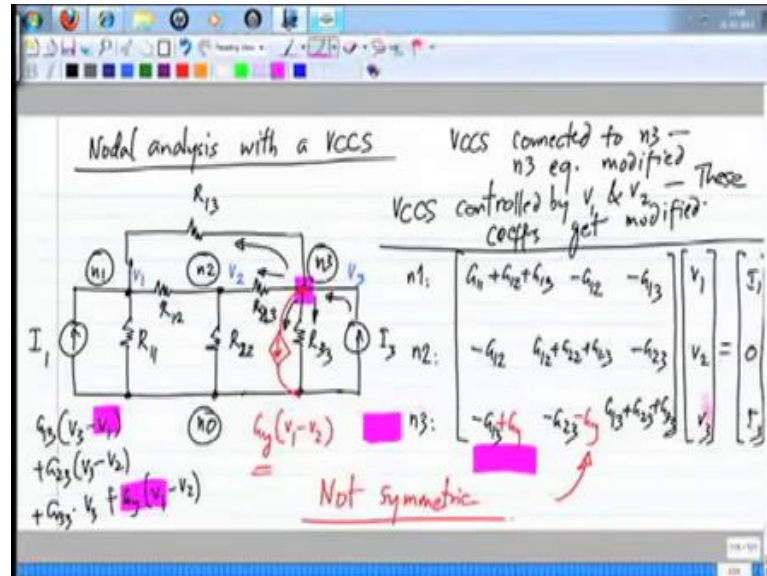 Nodal analysis with a VCCS
VCCS connected to n3 —
n3 eq. modified
VCCS controlled by V1 & V2 — These
coeffs get modified.
R13
n1
V1
n2
V2
n3
V3
R12
R23
I1
R11
R22
R33
I3
n0
Gy(V1-V2)
G13(V3-V1)
+G23(V3-V2)
+G33·V3 + Gy(V1-V2)
n1: G11+G12+G13 -G12 -G13 V1 I1
n2: -G12 G12+G22+G23 -G23 V2 = 0
n3: -G13+Gy -G23-Gy G13+G23+G33 V3 I3
Not symmetric